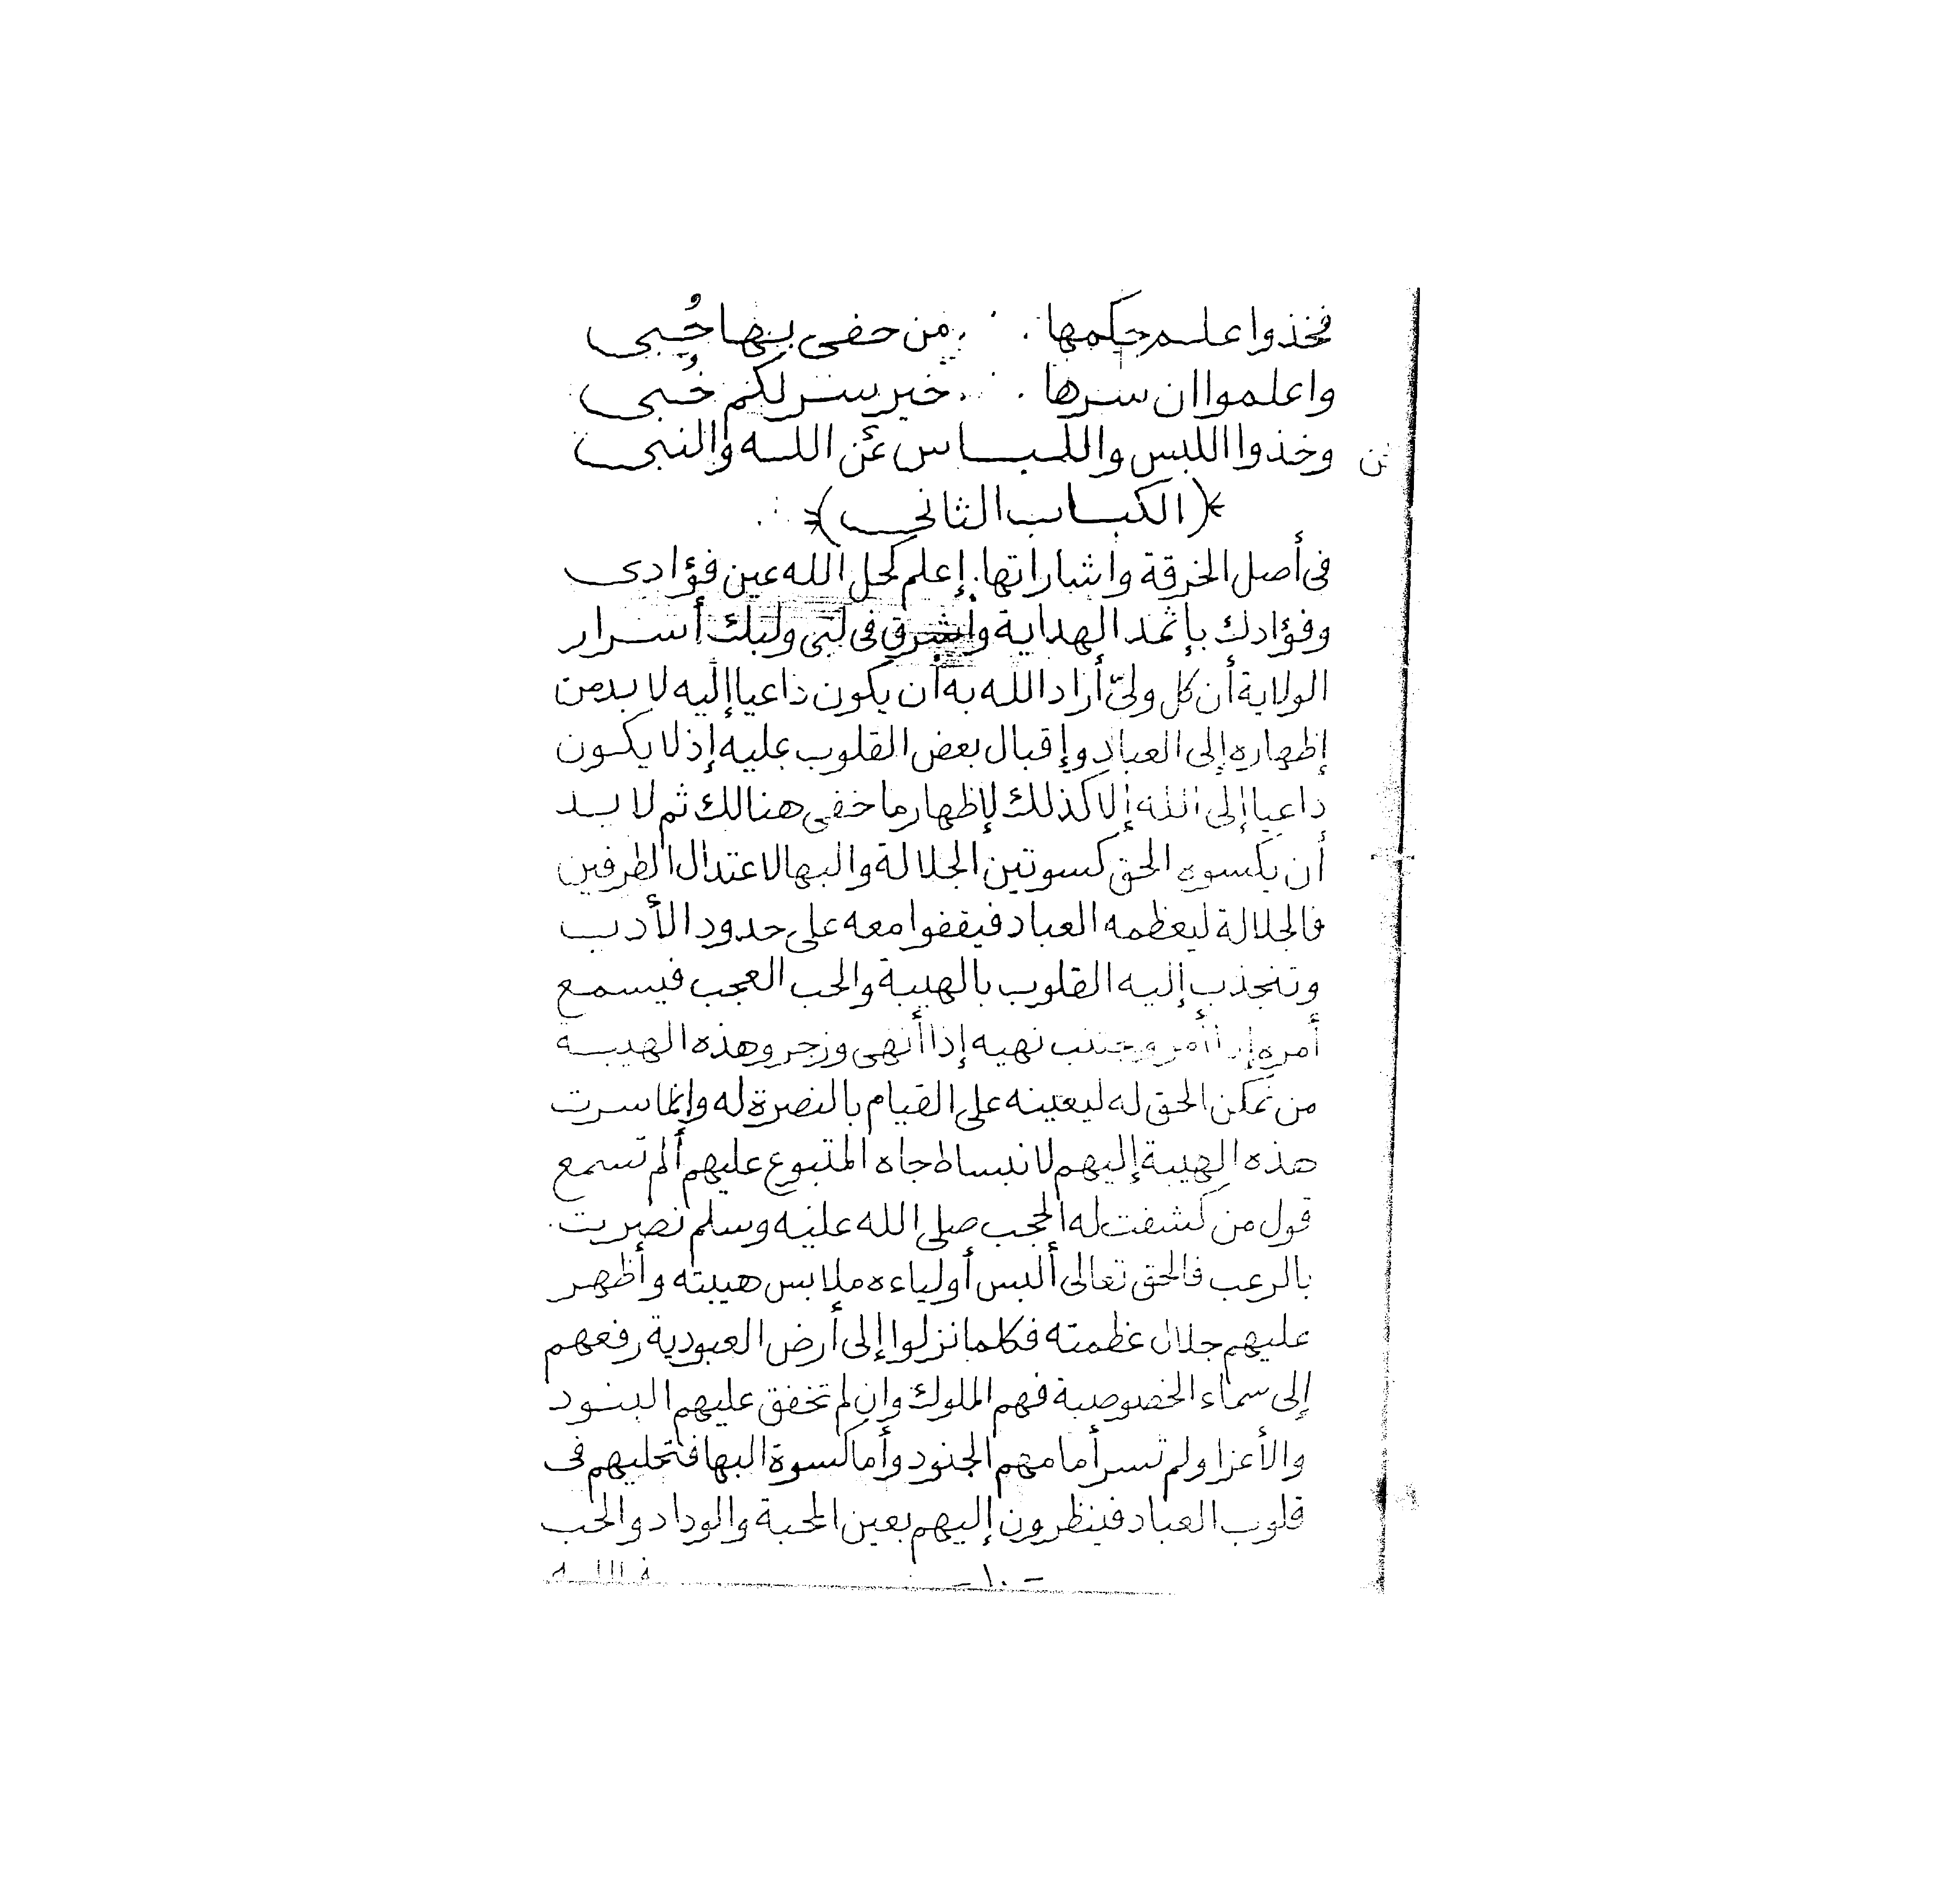 فخذوا علم حكمها ∴ من حفى بها حُبى
واعلموا ان سرها ∴ خير سر لكم خُبى
وخذوا اللبس واللباس عن الله والنبى
﴿الكباب الثانى﴾
فى أصل الخرقة واشاراتها. إعلم كحل الله عين فؤادى
وفؤادك بإثمد الهداية وأشرق فى لبى ولبك أسرار
الولاية أن كل ولىّ أراد الله به أن يكون داعيا إليه لا بد من
إظهاره إلى العباد وإقبال بعض القلوب عليه إذ لا يكون
داعيا إلى الله إلا كذلك لإظهار ما خفى هنالك ثم لا بد
أن يكسوه الحق كسوتين الجلالة والبها لاعتدال الطرفين
فالجلالة ليعظمه العباد فيقفوا معه على حدود الأدب
وتنجذب إليه القلوب بالهيبة والحب العجب فيسمع
أمره إذا أمر ويجتنب نهيه إذا أنهى وزجر وهذه الهيبة
من تمكن الحق له ليعينه على القيام بالنصرة له وإنما سرت
هذه الهيبة إليهم لانبساط جاه المتبوع عليهم ألم تسمع
قول من كشفت له الحجب صلى الله عليه وسلم نصرت
بالرعب فالحق تعالى ألبس أولياءه ملابس هيبته وأظهر
عليهم جلال عظمته فكلما نزلوا إلى أرض العبودية رفعهم
إلى سماء الخصوصية فهم الملوك وإن لم تخفق عليهم البنود
والأعزا ولم تسر أمامهم الجنود وأما كسوة البها فتحليهم فى
قلوب العباد فينظرون إليهم بعين المحبة والوداد والحب
- ١٠ -